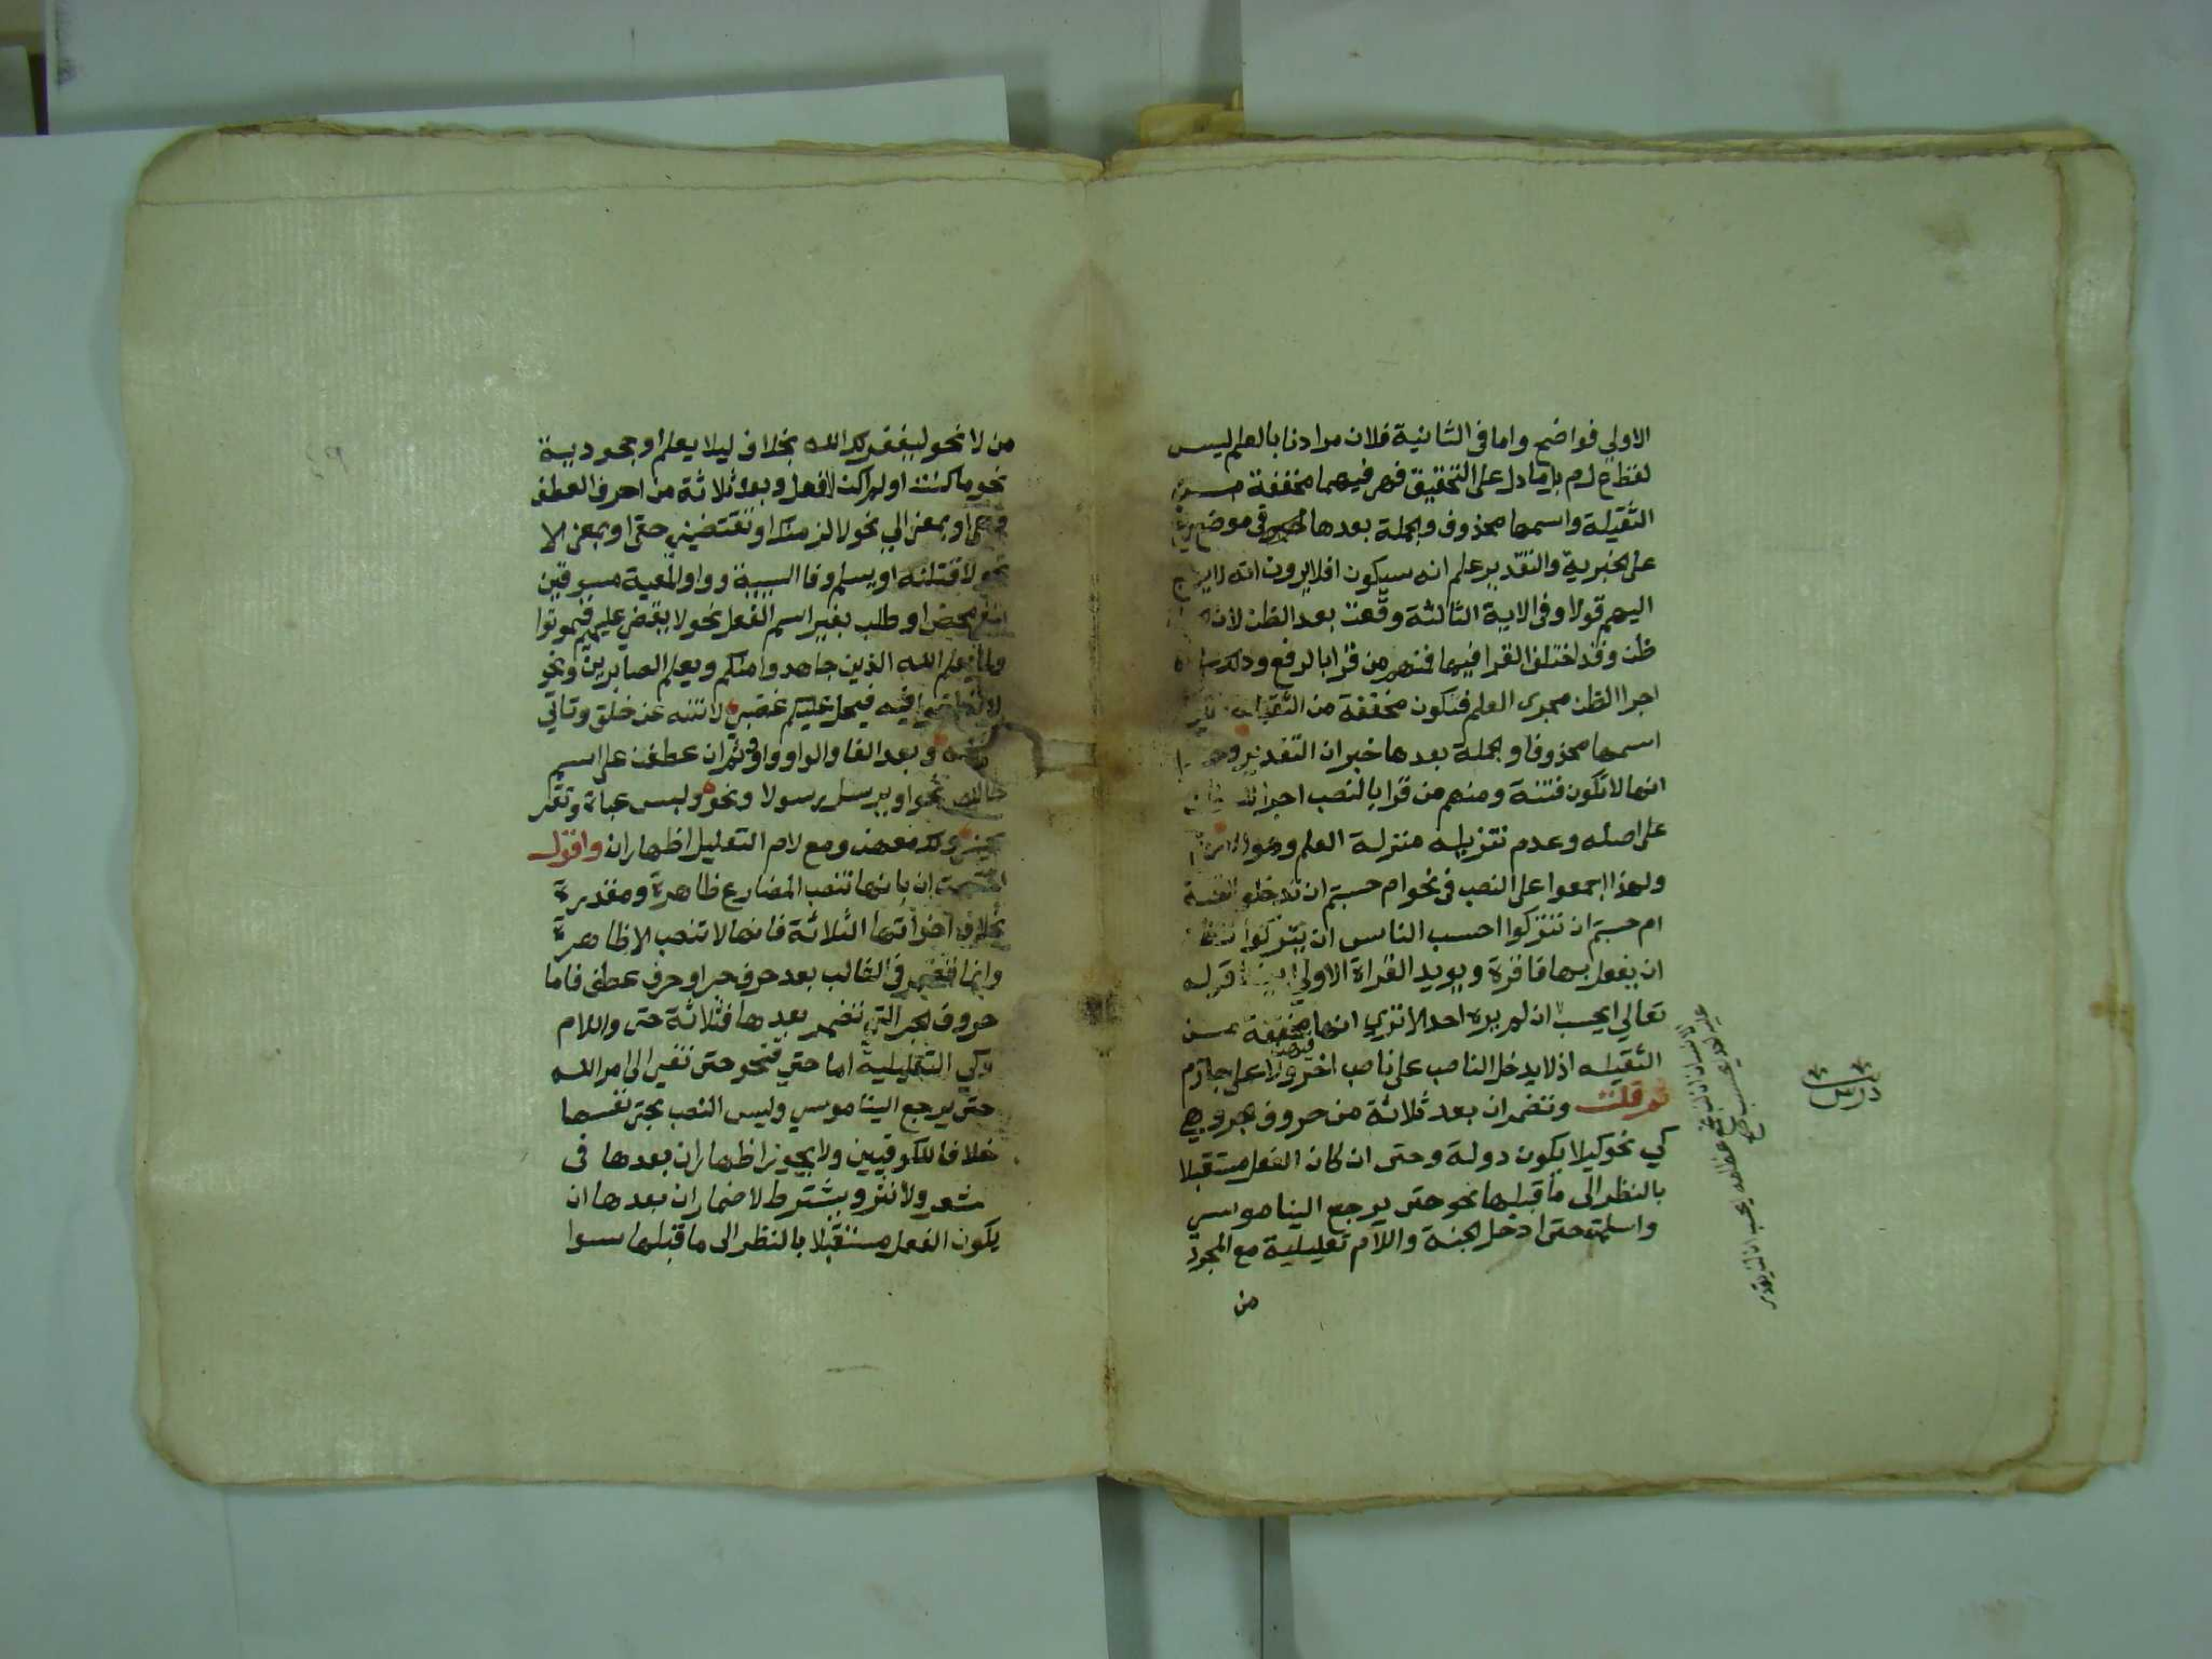 الاولي فواضح واما في الثانية فلان مرادنا بالعلم ليس
لفظ ع ل م بل ما دل على التحقيق فهي فيهما مخففة من
الثقيلة واسمها محذوف والجملة بعدها في موضع رفع
على الخبرية والتقدير علم انه سيكون افلا يرون انه لا يرجع
اليهم قولا وفي الاية الثالثة وقعت بعد الظن لان
ظن وقد اختلف القرا فيها فمنهم من قرا بالرفع وذلك على
اجرا الظن مجرى العلم فتكون مخففة من الثقيلة
اسمها محذوفا والجملة بعدها خبر ان التقدير وحسبوا
انها لا تكون فتنة ومنهم من قرا بالنصب اجرا للظن
على اصله وعدم تنزيله منزلة العلم وهو الارجح
ولهذا اجمعوا على النصب في نحو ام حسبتم ان تدخلوا الجنة
ام حسبتم ان تتركوا احسب الناس ان يتركوا تظن
ان يفعل بها فاقرة ويويد القراة الاولي ايضا قوله
تعالي ايحسب ان لم يره احد الا تري انها مخففة من
الثقيله اذ لا يدخل الناصب على ناصب اخر ولا على جازم
ثم قلت وتضمر ان بعد ثلاثة من حروف الجر وهي
كي نحو كيلا يكون دولة وحتى ان كان الفعل مستقبلا
بالنظر الى ما قبلها نحو حتى يرجع الينا موسي
واسلمت حتى ادخل الجنة واللام تعليلية مع المجرد
من
درس
من لا نحو ليغفر لك الله بخلاف ليلا يعلم او جحودية
نحو ما كنت او لم اكن لافعل وبعد ثلاثة من احرف العطف
وهي او بمعنى الي نحو لالزمنك او تقتضيني حقى او بمعنى الا
نحو لاقتلنه او يسلم وفا السببية وواو المعية مسبوقين
بنفي محض او طلب بغير اسم الفعل نحو لا يقضى عليهم فيموتوا
ولما يعلم الله الذين جاهدوا منكم ويعلم الصابرين ونحو
لا تطغوا فيه فيحل عليكم غضبي لا تنه عن خلق وتاتي
مثله وبعد الفا والواو واو وثم ان عطفن على اسم
خالص نحو او يرسل رسولا ونحو ولبس عباة وتقر
عيني ولك معهن ومع لام التعليل اظهار ان واقول
اختصت ان بانها تنصب المضارع ظاهرة ومقدرة
بخلاف اخواتها الثلاثة فانها لا تنصب الا ظاهرة
وانما تضمر في الغالب بعد حرف جر او حرف عطف فاما
حروف الجر التي تضمر بعدها فثلاثة حتى واللام
وكي التعليلية اما حتي فنحو حتى تفي الى امر الله
حتى يرجع الينا موسي وليس النصب بحتى نفسها
خلافا للكوفيين ولا يجوز اظهار ان بعدها في
شعر ولا نثر ويشترط لاضمار ان بعدها ان
يكون الفعل مستقبلا بالنظر الى ما قبلها سوا